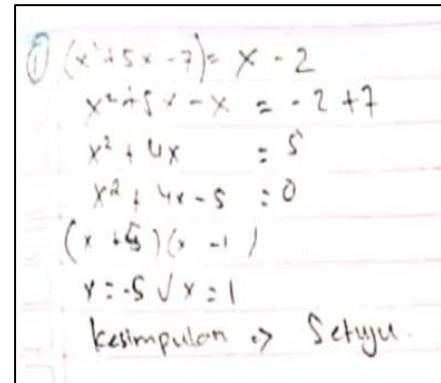 ① (x²+5x-7) = x - 2
x²+5x-x = -2+7
x²+4x = 5
x²+4x-5 = 0
(x+5)(x-1)
x=-5 √ x=1
Kesimpulan => Setuju.